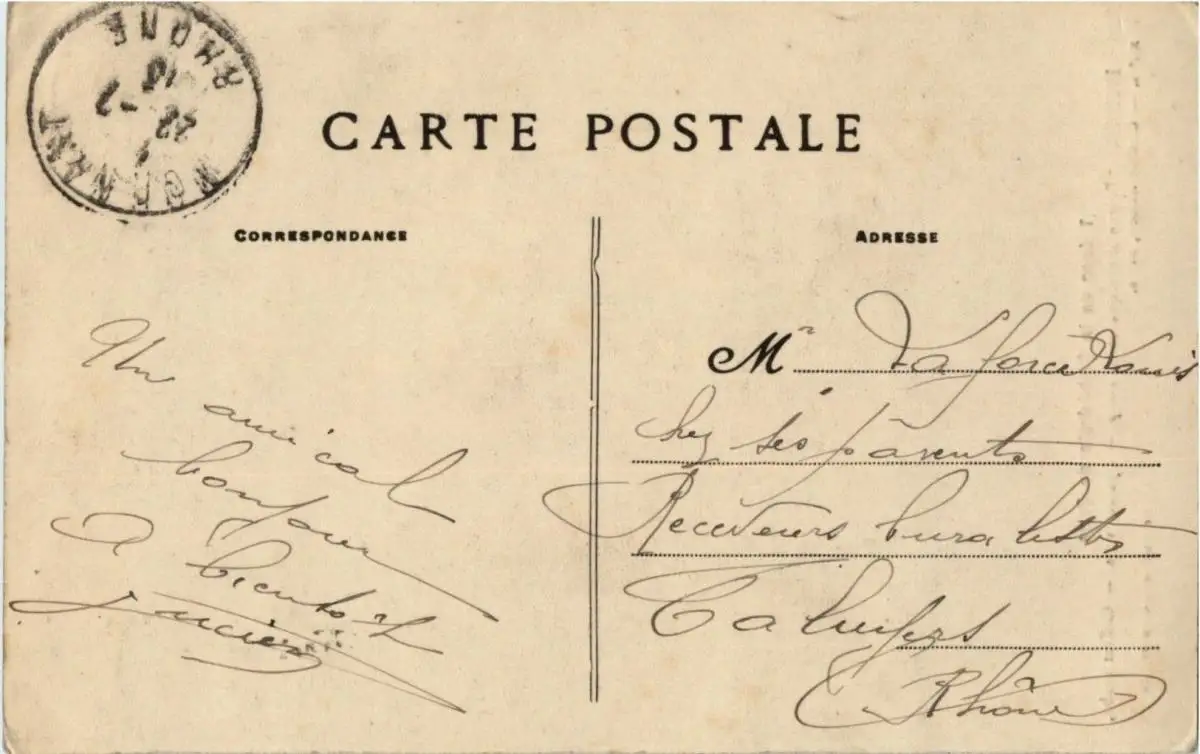 RHONE
MORNANT
CARTE POSTALE
CORRESPONDANCE
Un
amical
bonjour
A bientôt
Lucien
ADRESSE
Mr Laforce
chez ses parents
Receveurs buralistes
Caluyers
(Rhône)